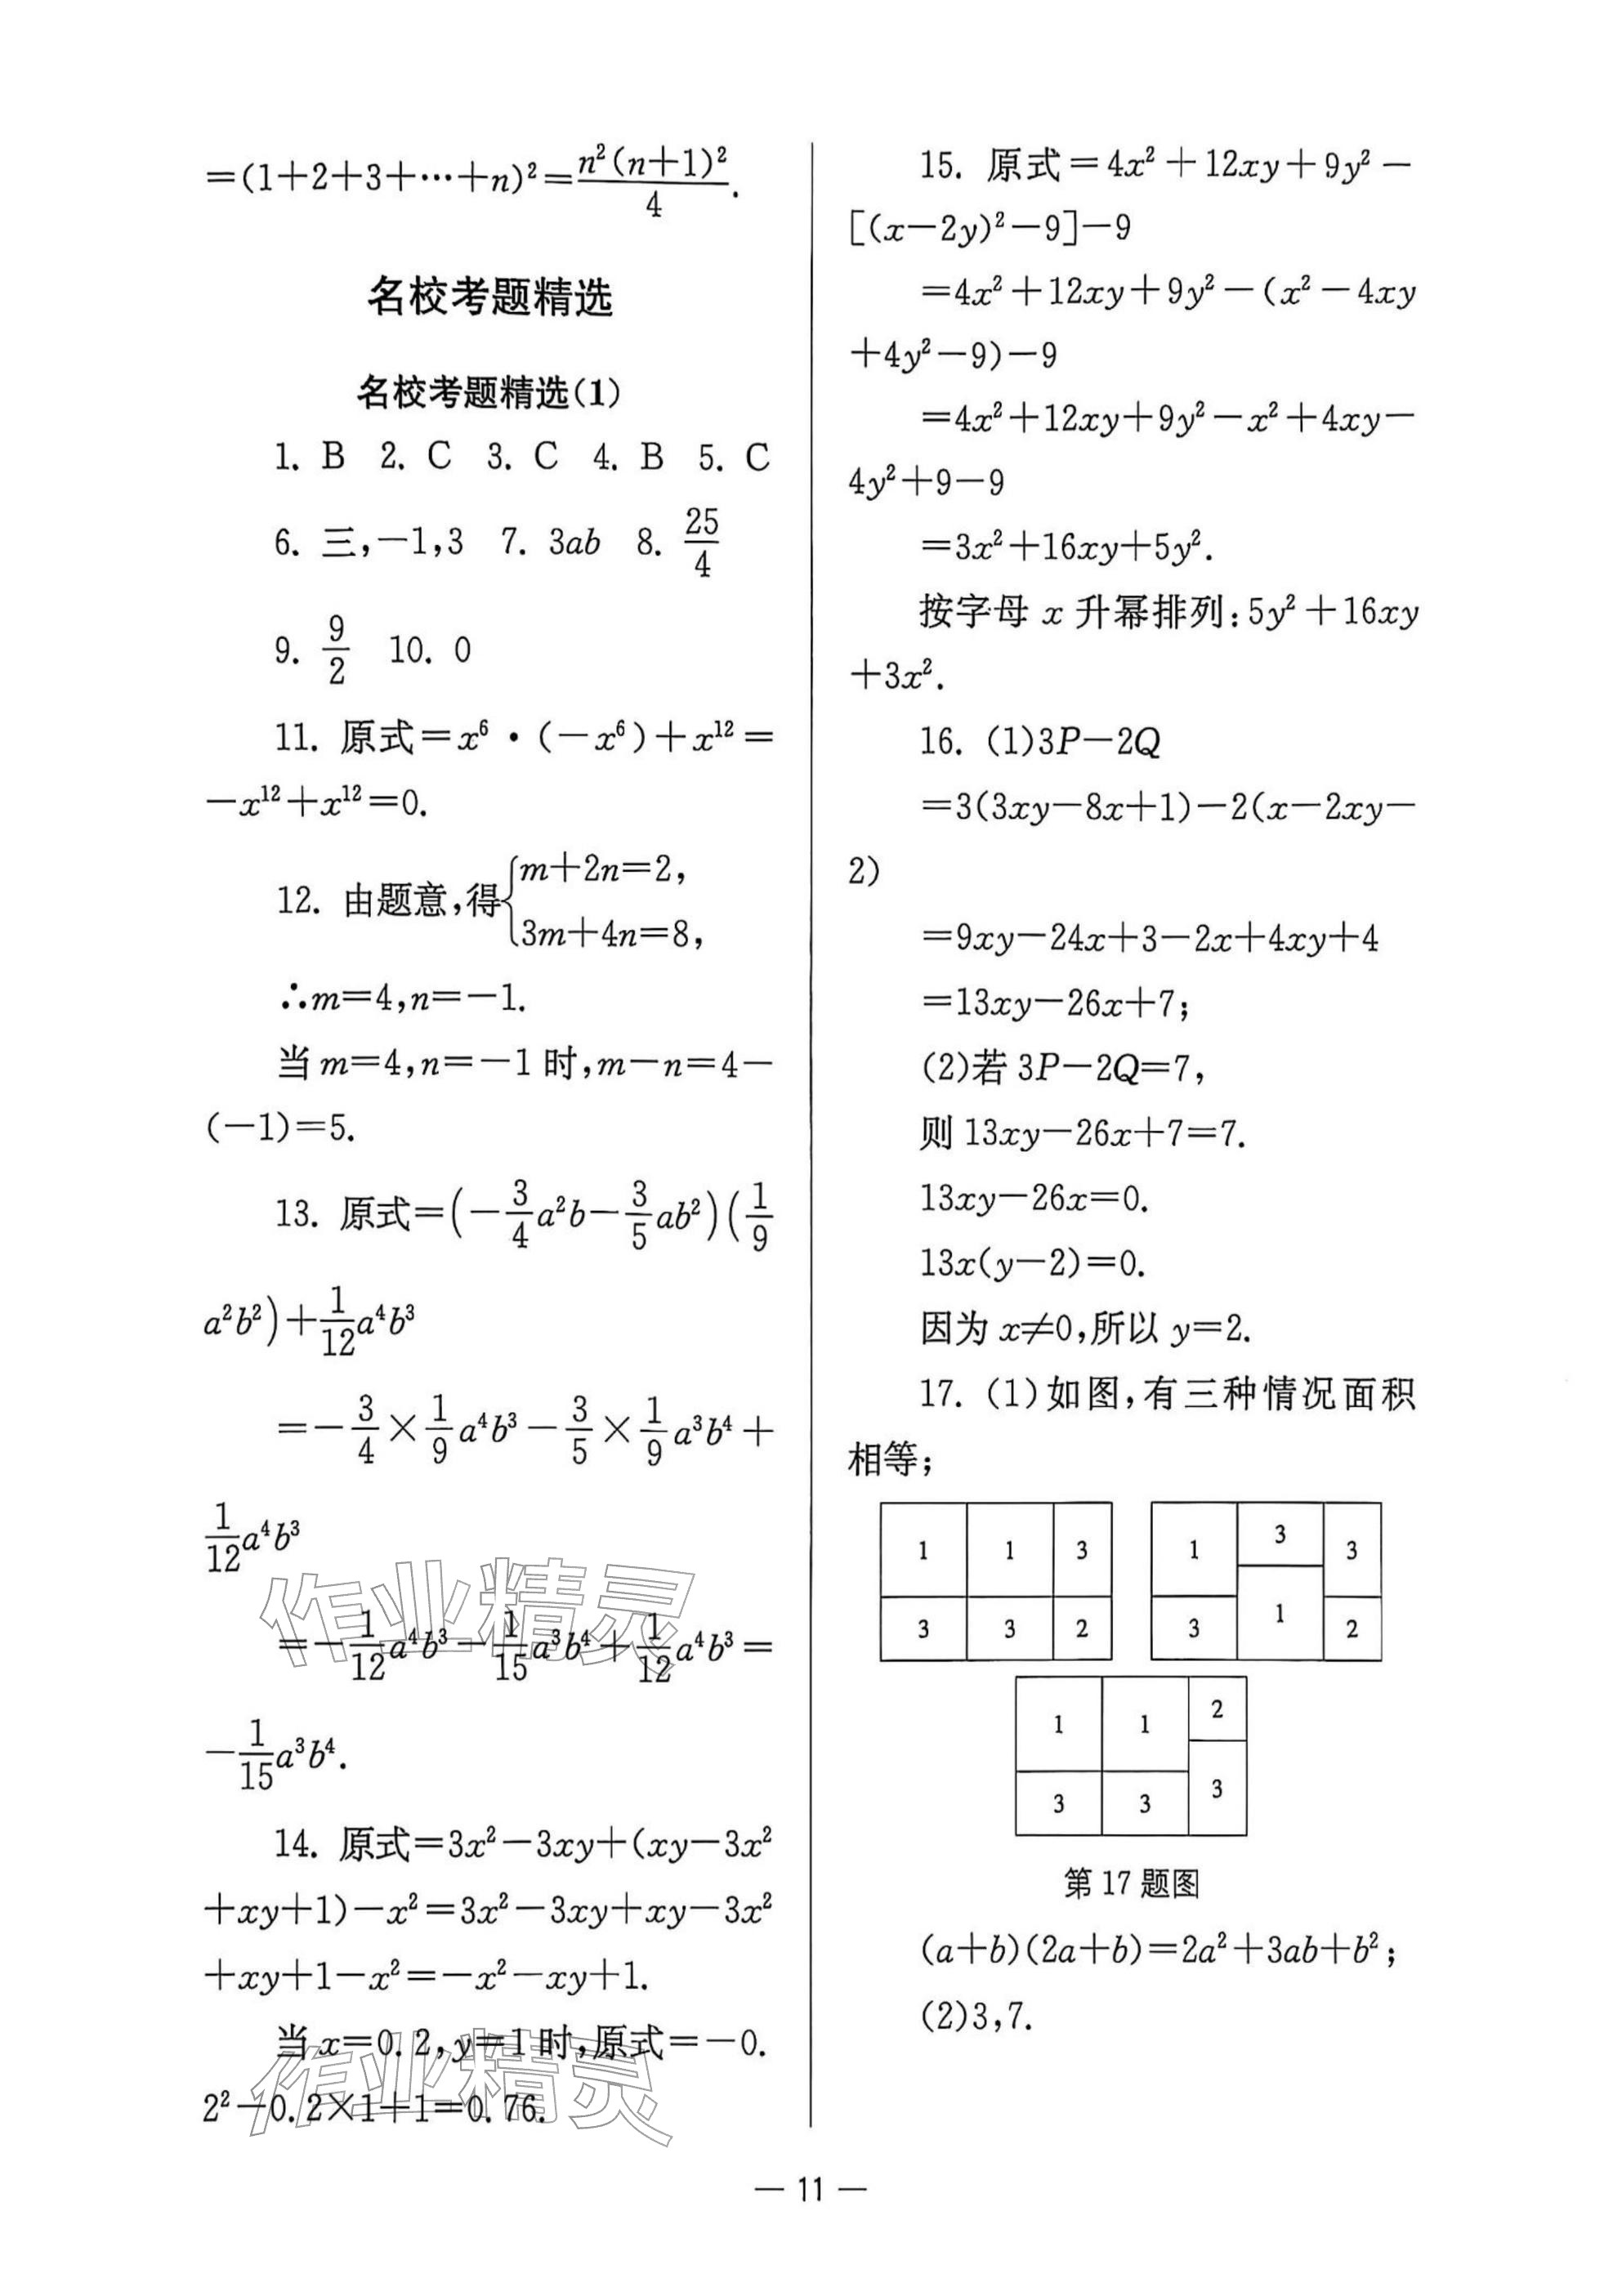 =(1+2+3+⋯+n)²=n²(n+1)²/4.
名校考题精选
名校考题精选(1)
1. B 2. C 3. C 4. B 5. C
6. 三,-1,3 7. 3ab 8. 25/4
9. 9/2 10. 0
11. 原式=x⁶·(-x⁶)+x¹²=
-x¹²+x¹²=0.
12. 由题意,得{m+2n=2,
3m+4n=8,
∴m=4,n=-1.
当 m=4,n=-1 时,m-n=4-
(-1)=5.
13. 原式=(-3/4a²b-3/5ab²)(1/9
a²b²)+1/12a⁴b³
=-3/4×1/9a⁴b³-3/5×1/9a³b⁴+
1/12a⁴b³
=-1/12a⁴b³-1/15a³b⁴+1/12a⁴b³=
-1/15a³b⁴.
14. 原式=3x²-3xy+(xy-3x²
+xy+1)-x²=3x²-3xy+xy-3x²
+xy+1-x²=-x²-xy+1.
当 x=0.2,y=1 时,原式=-0.
2²-0.2×1+1=0.76.
作业精灵
作业精灵
15. 原式=4x²+12xy+9y²-
[(x-2y)²-9]-9
=4x²+12xy+9y²-(x²-4xy
+4y²-9)-9
=4x²+12xy+9y²-x²+4xy-
4y²+9-9
=3x²+16xy+5y².
按字母 x 升幂排列:5y²+16xy
+3x².
16. (1)3P-2Q
=3(3xy-8x+1)-2(x-2xy-
2)
=9xy-24x+3-2x+4xy+4
=13xy-26x+7;
(2)若 3P-2Q=7,
则 13xy-26x+7=7.
13xy-26x=0.
13x(y-2)=0.
因为 x≠0,所以 y=2.
17. (1)如图,有三种情况面积
相等;
1 1 3
3 3 2
1 3 3
3 1 2
1 1 2
3 3 3
第 17 题图
(a+b)(2a+b)=2a²+3ab+b²;
(2)3,7.
— 11 —